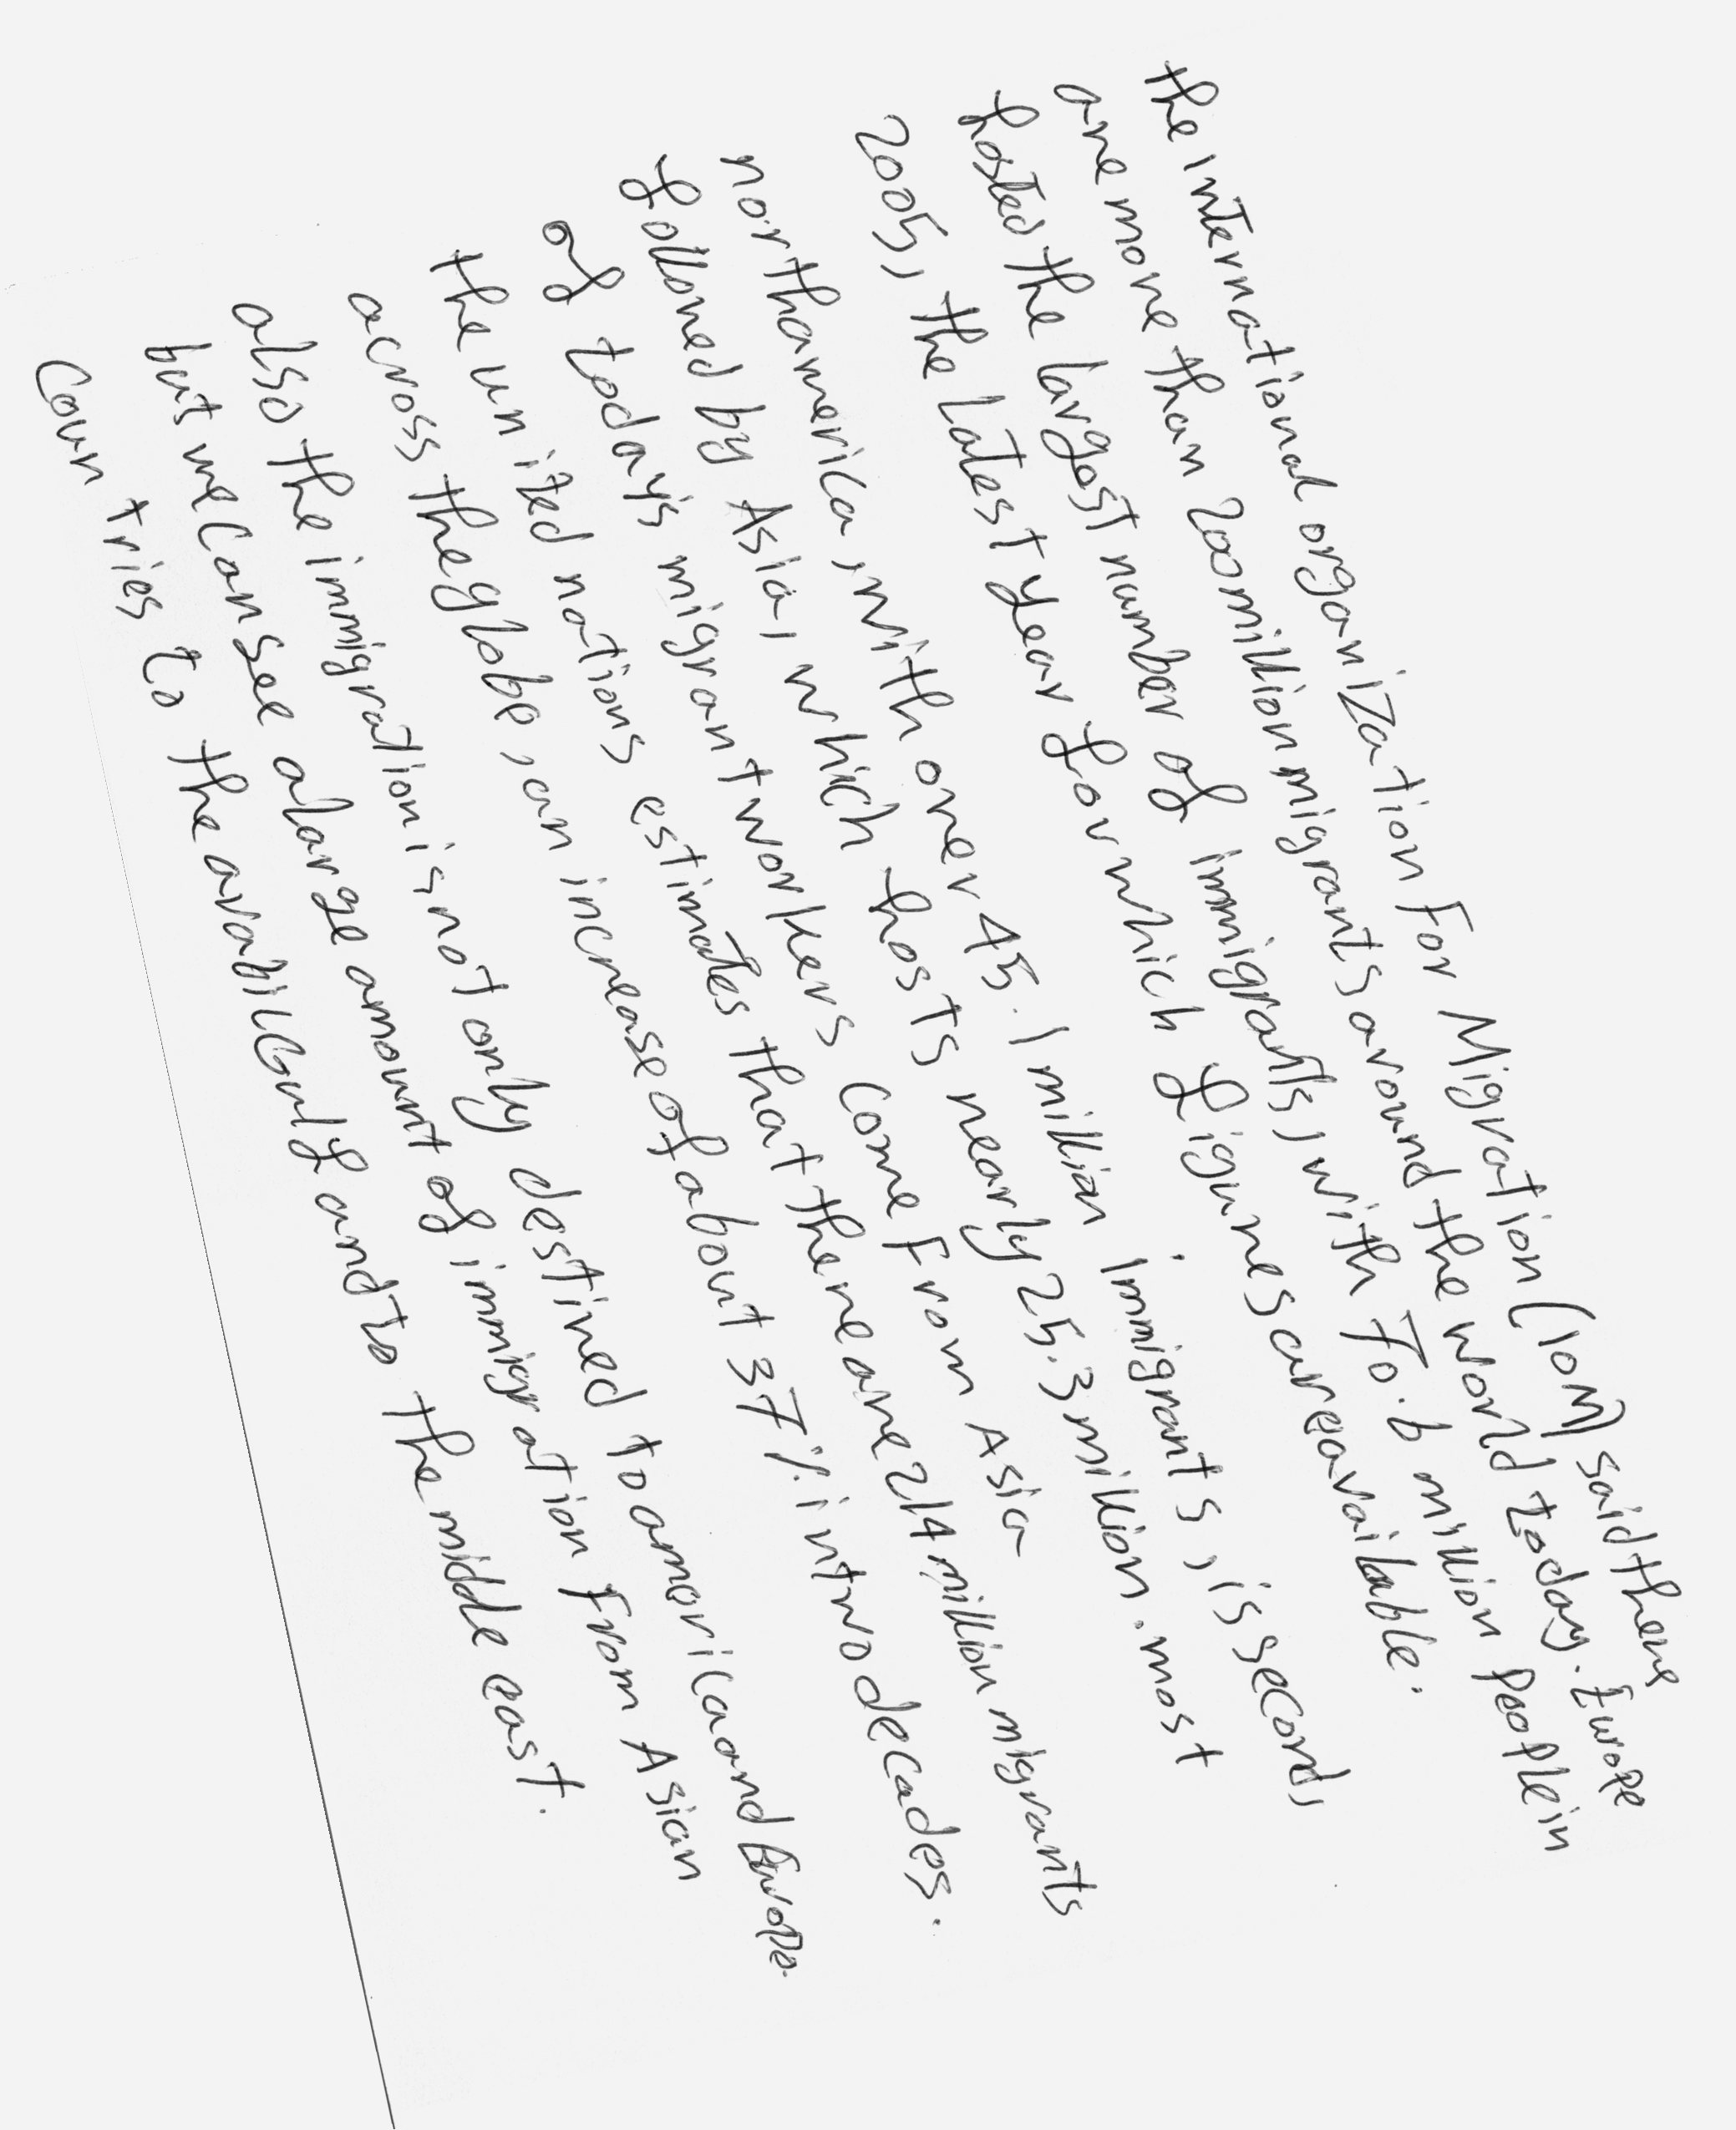 the international organization For Migration (IOM) said there
are more than 200 million migrants around the world today. Europe
hosted the largest number of immigrants, with 70.6 million people in
2005, the Latest year for which figures are available.
north america, with over 45.1 million immigrants, is second,
followed by Asia, which hosts nearly 25.3 million. most
of today's migrant workers come From Asia
the united nations estimates that there are 214 million migrants
across the globe, an increase of about 37% in two decades.
also the immigration is not only destined to america and Europe.
but we can see a large amount of immigration from Asian
countries to the arab Gulf and to the middle east.